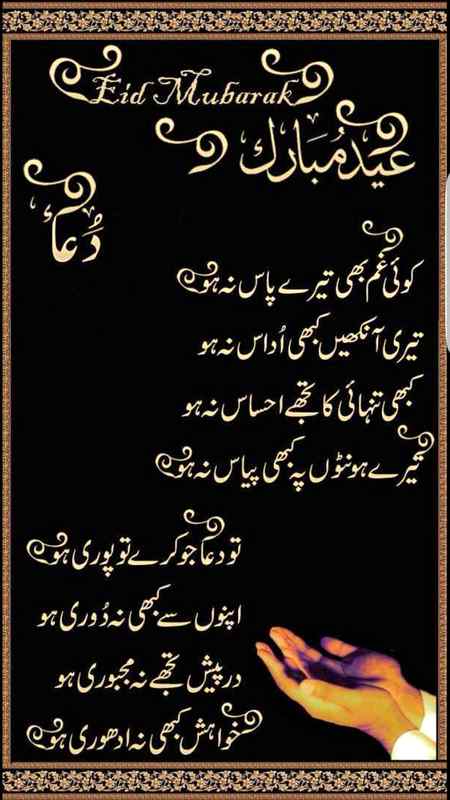 Eid Mubarak
عید مُبارک
دُعاء
کوئی غم بھی تیرے پاس نہ ہو
تیری آنکھیں کبھی اُداس نہ ہو
کبھی تنہائی کا تجھے احساس نہ ہو
تیرے ہونٹوں پہ کبھی پیاس نہ ہو
تو دعا جو کرے تو پوری ہو
اپنوں سے کبھی نہ دُوری ہو
درپیش تجھے نہ مجبوری ہو
خواہش کبھی نہ ادھوری ہو